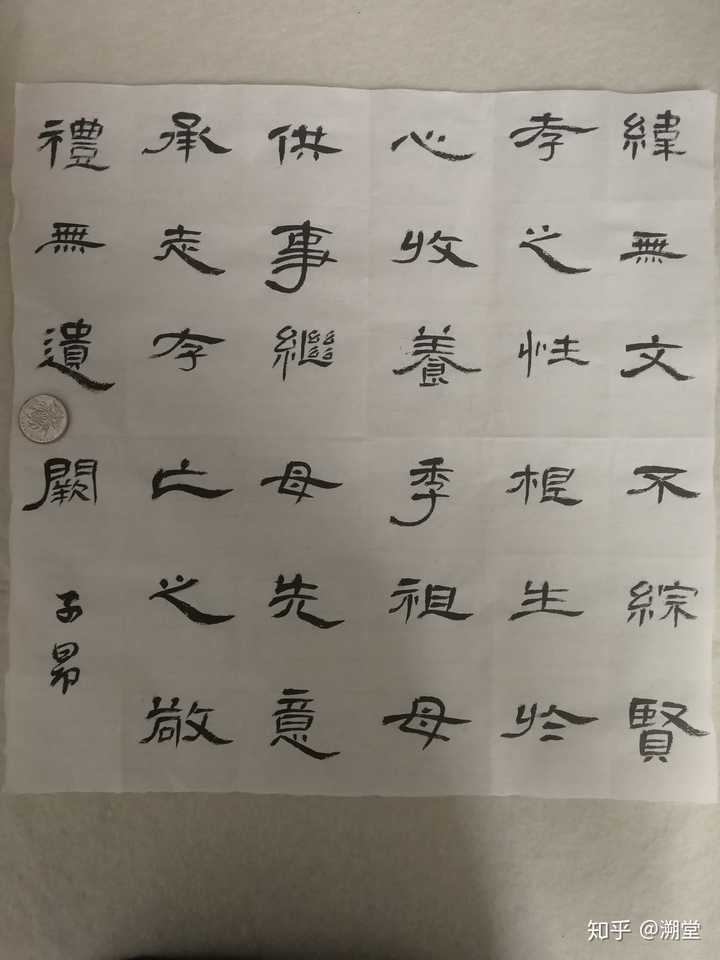 緯無文不綜賢
孝之性根生於
心收養季祖母
供事繼母先意
承志存亡之敬
禮無遺闕
子昂
知乎 @溯堂